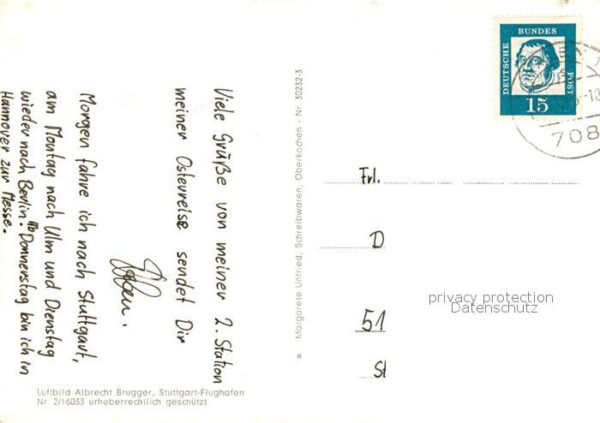 Viele Grüße von meiner 2. Station
meiner Osterreise sendet Dir
Morgen fahre ich nach Stuttgart,
am Montag nach Ulm und Dienstag
wieder nach Berlin. Ab Donnerstag bin ich in
Hannover zur Messe.
Luftbild Albrecht Brugger, Stuttgart-Flughafen
Nr. 2/16033 urheberrechtlich geschützt
Margarete Unfried, Schreibwaren, Oberkochen - Nr. 30252-3
DEUTSCHE
BUNDES
POST
15
708
Frl.
D
51
St
privacy protection
Datenschutz